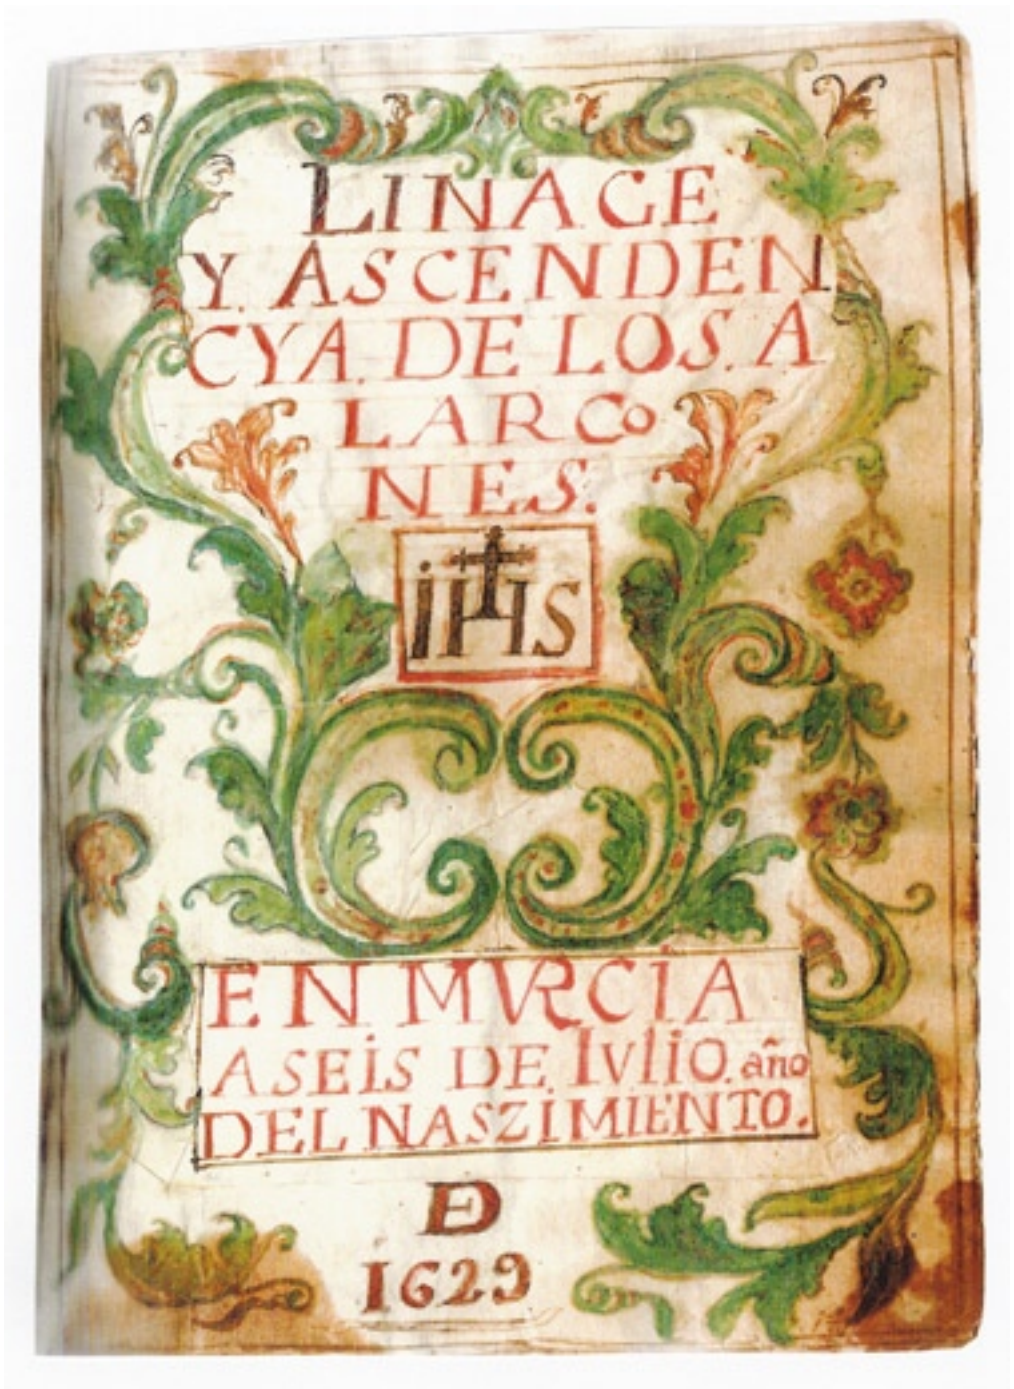 LINAGE
Y ASCENDEN
CYA. DE LOS. A
LARCO
NES.
IHS
EN MVRCIA
A SEIS DE IVlIO. año
DEL NASZIMIENTO.
DE
1629